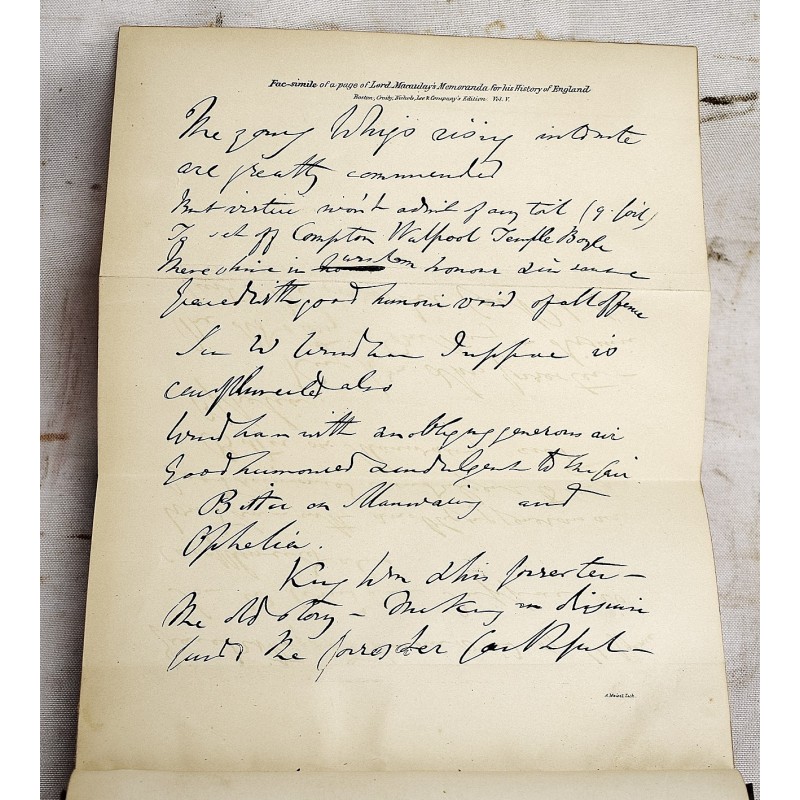 Fac-simile of a page of Lord Macaulay's Memoranda for his History of England
Boston, Crosby, Nichols, Lee & Company's Edition. Vol. V.
The young Whigs rising
are greatly commended
But virtue won't admit of any toil (q. foil)
To set off Compton Walpool Temple Boyle
These shine in honour
Graced with good humour void of all offence
Sir W Wrndham I suppose is
complimented also
Wrndham with an obliging generous air
Good humoured & indulgent to the fair.
Bitter on Manwaring and
Ophelia.
King Wm & his forrester —
The old story — The King in disguise
finds the forrester faithful —